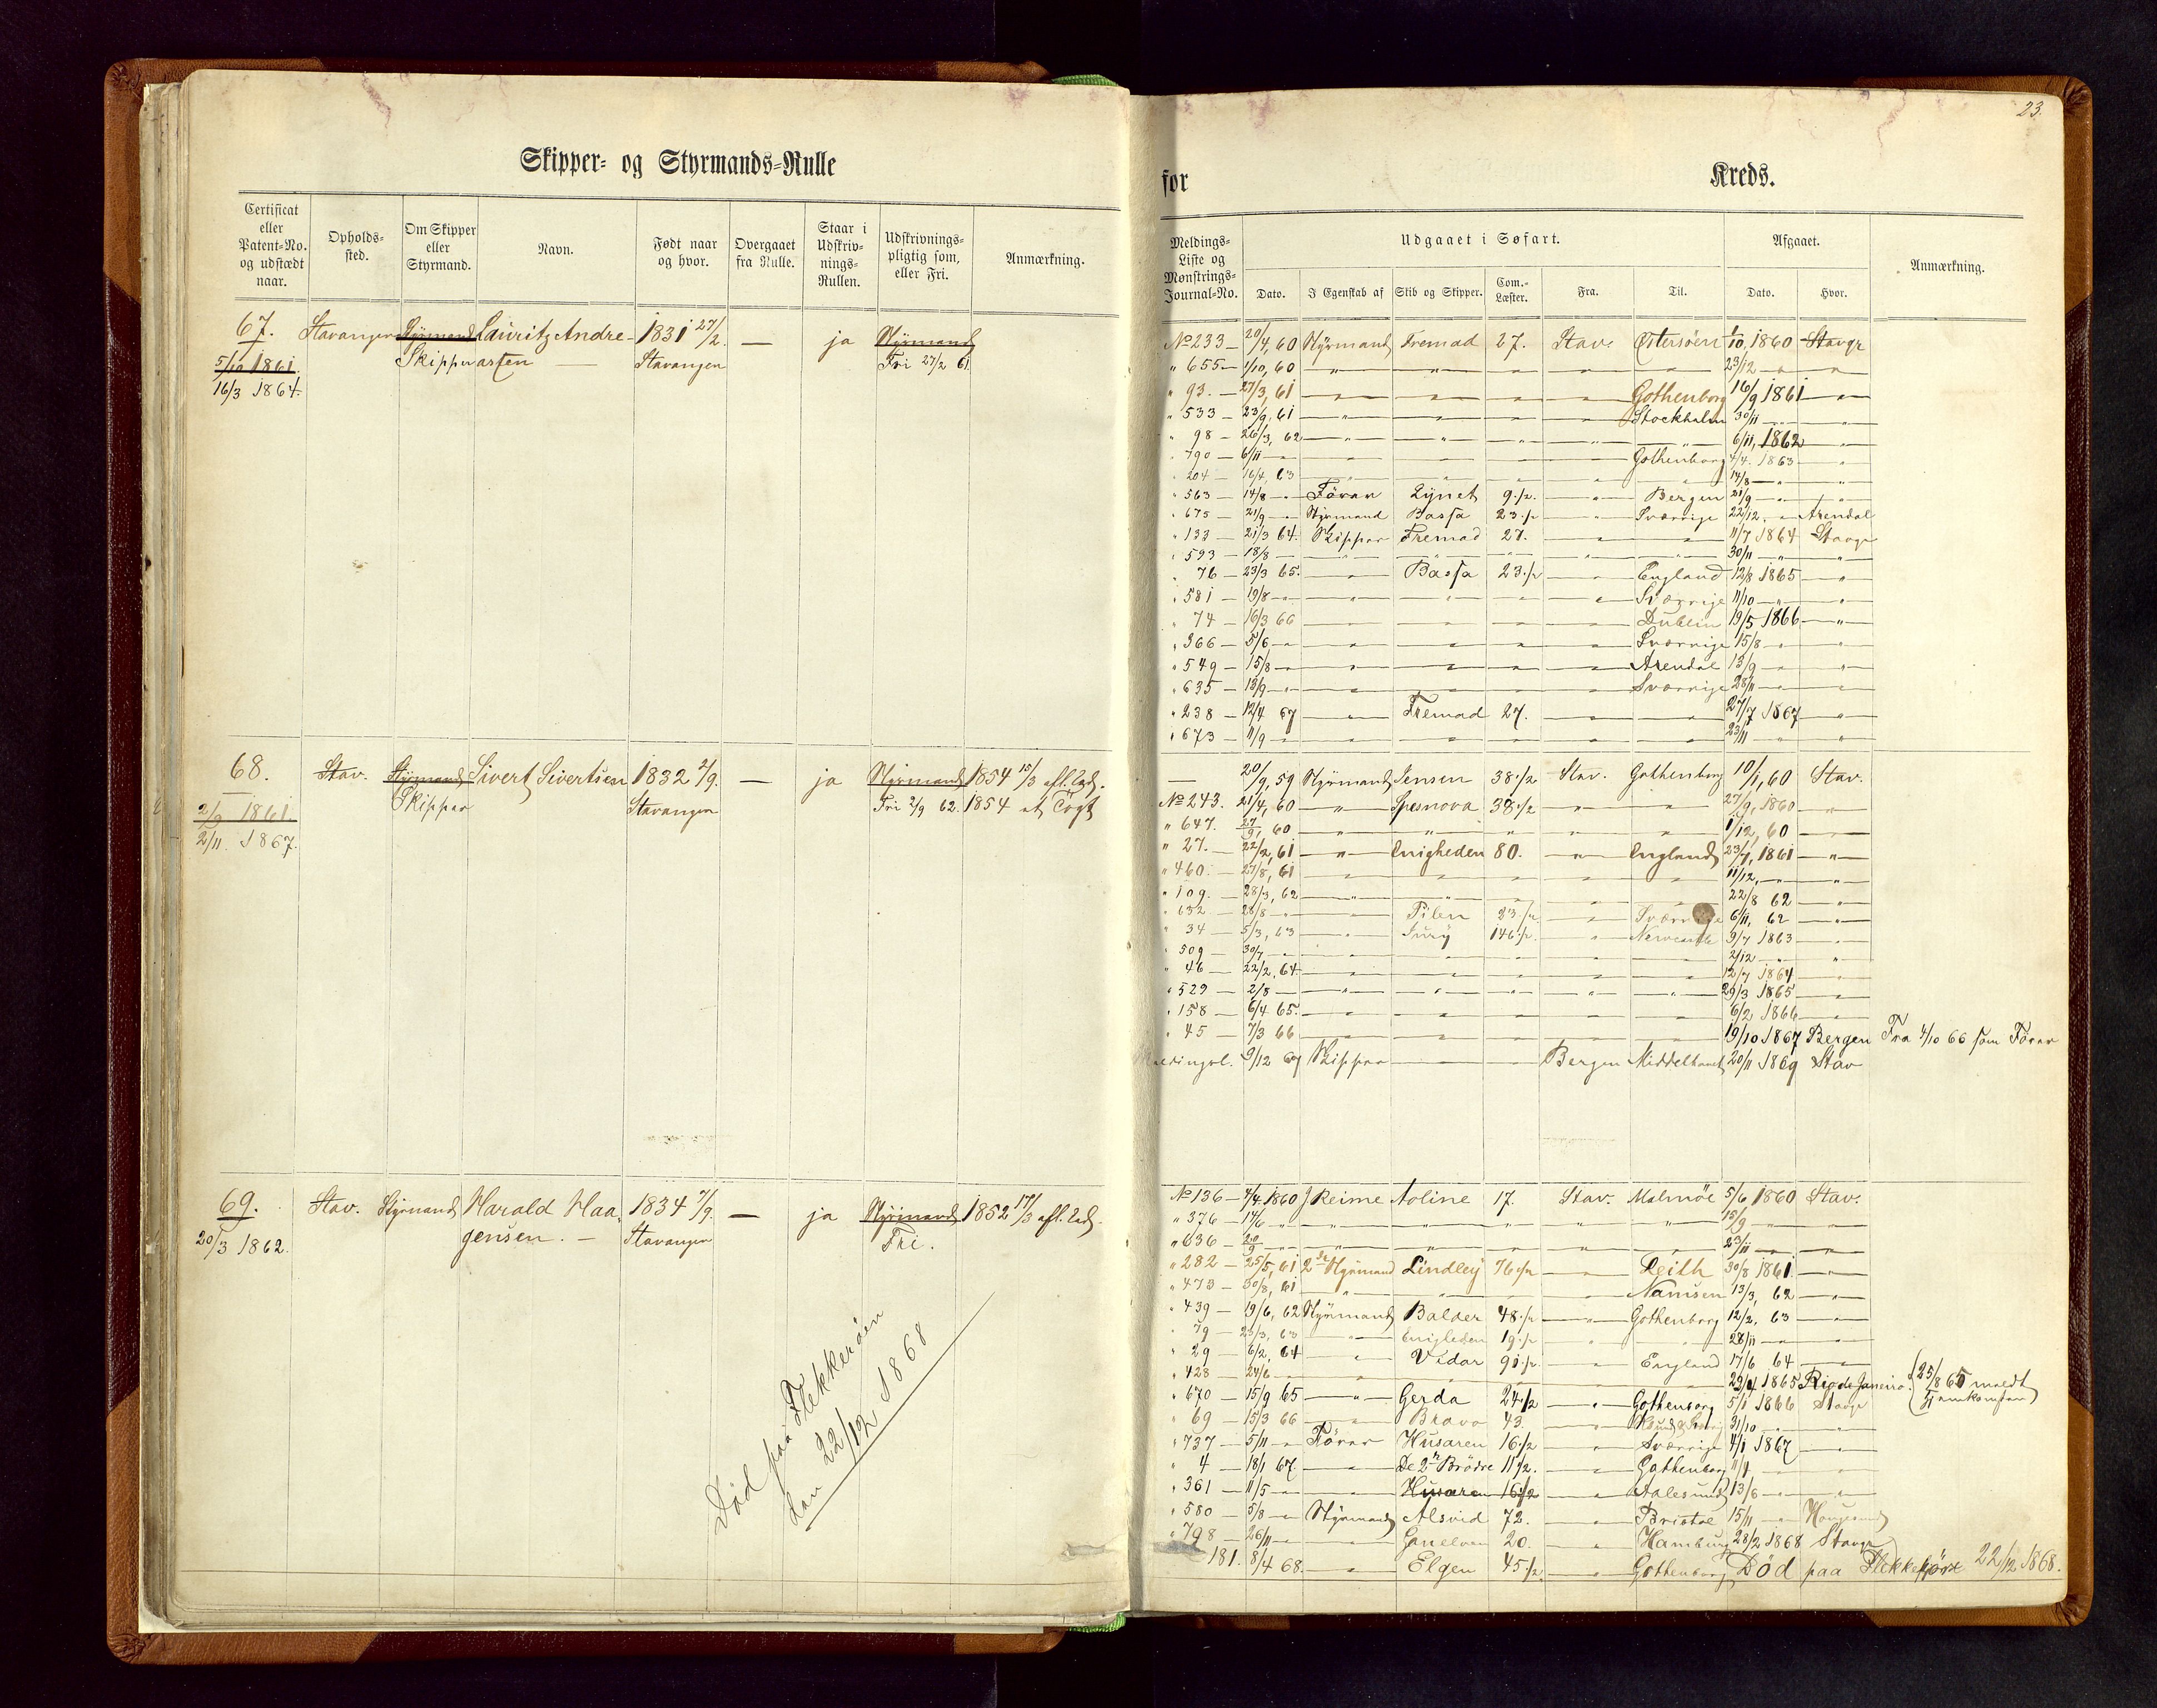 Skipper- og Styrmands-Rulle
Certificat eller Patent-No. og udstædt naar.
Opholds-sted.
Om Skipper eller Styrmand.
Navn.
Født naar og hvor.
Overgaaet fra Rulle.
Staar i Udskriv-nings-Rullen.
Udskrivnings-pligtig som, eller Fri.
Anmærkning.
67. Stavanger Styrmand Lauritz Andre- 1831 27/2. — ja Styrmand
5/10 1861. Skipper arsen — Stavanger Fri 27/2 61
16/3 1864.
68. Stav. Styrmand Sivert Sivertsen 1832 2/9. — ja Styrmand 1854 15/3 afl. Ed.
2/9 1861. Skipper Stavanger Fri 2/9 62. 1854 et Togt
2/11. 1867.
69. Stav. Styrmand Harald Haa- 1834 7/9. — ja Styrmand 1852 17/3 afl. Ed.
20/3 1862. gensen. — Stavanger Fri.
Død paa Flekkerøen
den 22/12 1868
23.
for Kreds.
Meldings-Liste og Mønstrings-Journal-No.
Udgaaet i Søfart.
Dato.
I Egenskab af
Skib og Skipper.
Com.-Læster.
Fra.
Til.
Afgaaet.
Dato.
Hvor.
Anmærkning.
No 233 — 20/4, 60 Styrmand Fremad 27. Stav. Østersøen 1/10, 1860 Stavgr
" 655 — 1/10, 60 " " " " " 23/12 " "
" 93. — 27/3, 61 " " " " Gothenborg 16/9 1861 "
" 533 — 23/9, 61 " " " " Stockholm 30/11 " "
" 98 — 26/3, 62 " " " " " 6/11, 1862 "
" 790 — 6/11 " " " " " Gothenborg 4/4. 1863 "
" 204 — 16/4, 63 " " " " " 14/8 " "
" 563 — 14/8 " Fører Lynet 9 1/2. " Bergen 21/9 " "
" 675 — 21/9 " Styrmand Bassa 23 1/2 " Sværrige 22/12 " Arendal
" 133 — 21/3 64. Skipper Fremad 27. " " 11/7 1864 Stavgr
" 593 — 18/8 " " " " " 30/11 " "
" 76 — 23/3 65. " Bassa 23 1/2 " England 12/8 1865 "
" 581 — 19/8 " " " " " Sværrige 11/10 " "
" 74 — 16/3 66 " " " " Dublin 19/5 1866 "
" 366 — 5/6 " " " " " Sværrige 15/8 " "
" 549 — 15/8 " " " " " Arendal 13/9 " "
" 635 — 13/9 " " " " " Sværrige 28/11 " "
" 238 — 12/4 67 " Fremad 27. " " 27/7 1867 "
" 673 — 11/9 " " " " " " 23/11 " "
— 20/9, 59 Styrmand Jensen 38 1/2 Stav. Gothenborg 10/1, 60 Stav.
No 243. 21/4, 60 " Spesnova 38 1/2 " " 27/9, 1860 "
" 647. 27/9, 60 " " " " " 1/12, 60 "
" 27. — 22/2, 61 " Enigheden 80. " England 23/7, 1861 "
" 460. — 27/8, 61 " " " " " 11/12, " "
" 109. — 28/3, 62 " " " " " 22/8 62 "
" 632 — 28/8 " " Pilen 23 1/2 " Sværrige 6/11, 62 "
" 34 — 5/3, 63 " Jury 146 1/2. " 9/7 1863 "
" 509 — 30/7 " " " " " " 2/12 " "
" 46 — 22/2, 64. " " " " " 12/7 1864 "
" 529 — 2/8 " " " " " 29/3 1865 "
" 158 — 6/4 65. " " " " " 6/2 1866 "
" 45 — 7/3 66 " " " " " 19/10 1867 Bergen Fra 4/10 66 som Fører
9/12 67 Skipper " " Bergen Middelhavet 20/11 1869 Stav
No 136 — 4/4 1860 Reime Noline 17. Stav. Malmøe 5/6 1860 Stav.
" 376 — 14/6 " " " " " " 15/9 " "
" 636 — 20/9 " " " " " " 23/11 " "
" 282 — 25/5, 61 2den Styrmand Lindley 76 1/2 " Leith 30/8 1861. "
" 473 — 30/8, 61 " " " " Namsen 13/3, 62 "
" 439 — 19/6, 62 Styrmand Balder 48 1/2 " Gothenborg 12/2, 63 "
" 79 — 23/3, 63 " Enigheden 19 1/2 " " 28/11 " "
" 29 — 6/2, 64 " Vidar 90 1/2. " England 17/6 64 "
" 428 — 24/6 " " " " " 1865 Rio de Janeiro. (25/8 65 meldt Hjemkomsten)
" 670 — 15/9 65 " Gerda 24 1/2 " Gothenborg 5/1 1866 Stavgr
" 69 — 15/3 66 " Bravo 43. " 31/10 " "
" 737 — 5/11 " Fører Husaren 16 1/2 " Sværrige 4/1 1867 "
" 4 — 18/1 67. " De 2de Brødre 11 1/2. " Gothenborg " "
" 361 — 11/5 " " Husaren 16 1/2 " Aalesund 13/6 " "
" 580 — 5/8 " Styrmand Alsvid 72. " Bristol 15/11 " Haugesund
" 798 — 26/11 " " 20. " Hamburg 28/2 1868 Stavgr
181. 8/4 68. " Elgen 45 1/2. " Gothenborg Død paa 22/12 1868.